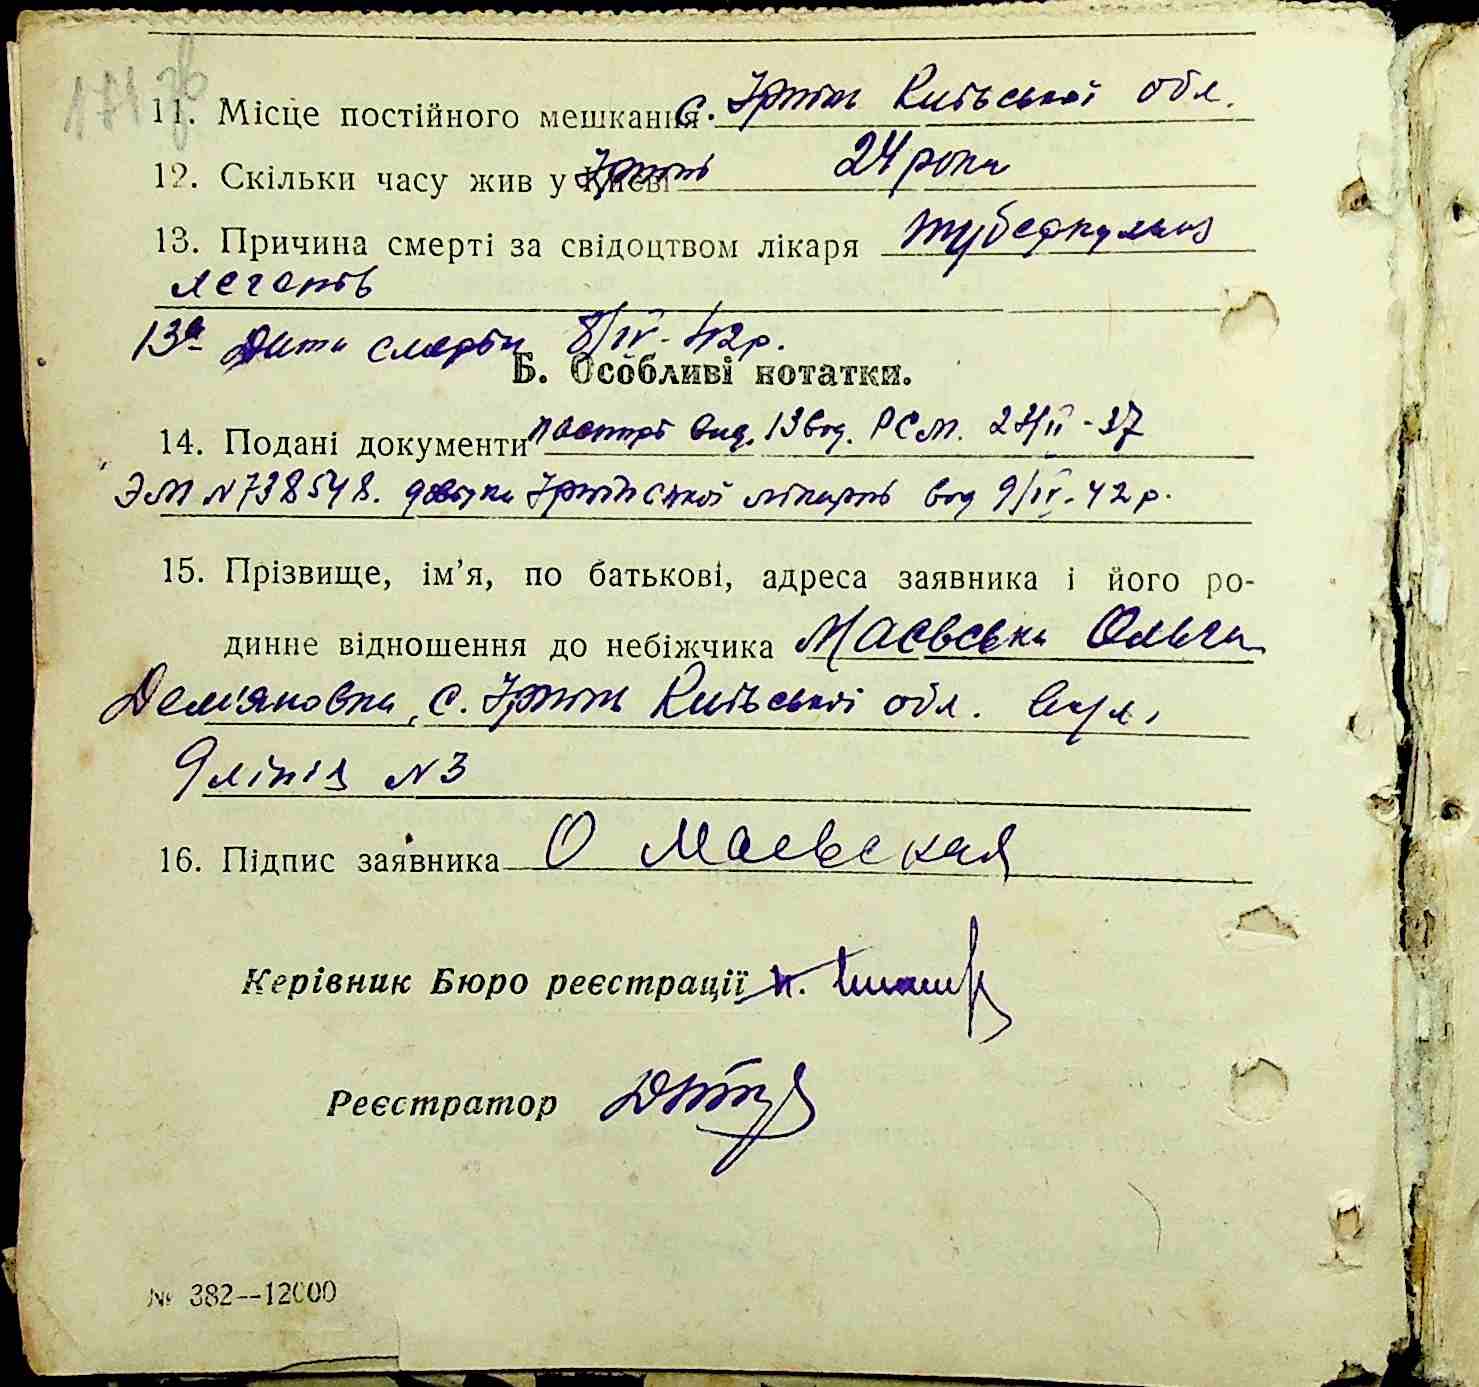 171 зв
11. Місце постійного мешкання с. Ірпінь Київської обл.
12. Скільки часу жив у Києві Ірпінь 24 роки
13. Причина смерті за свідоцтвом лікаря туберкульоз
легенів
13а Дата смерти 8/IV-42 р.
Б. Особливі нотатки.
14. Подані документи паспорт вид. 13 від. РСМ. 23/II-37
ЭМ N 738548. довідка Ірпінської лікарні від 9/IV-42 р.
15. Прізвище, ім’я, по батькові, адреса заявника і його ро-
динне відношення до небіжчика Маєвська Ольга
Дем'яновна, с. Ірпінь Київської обл. вул.
N 3
16. Підпис заявника О Маевская
Керівник Бюро реєстрації
Реєстратор
№ 382—12000